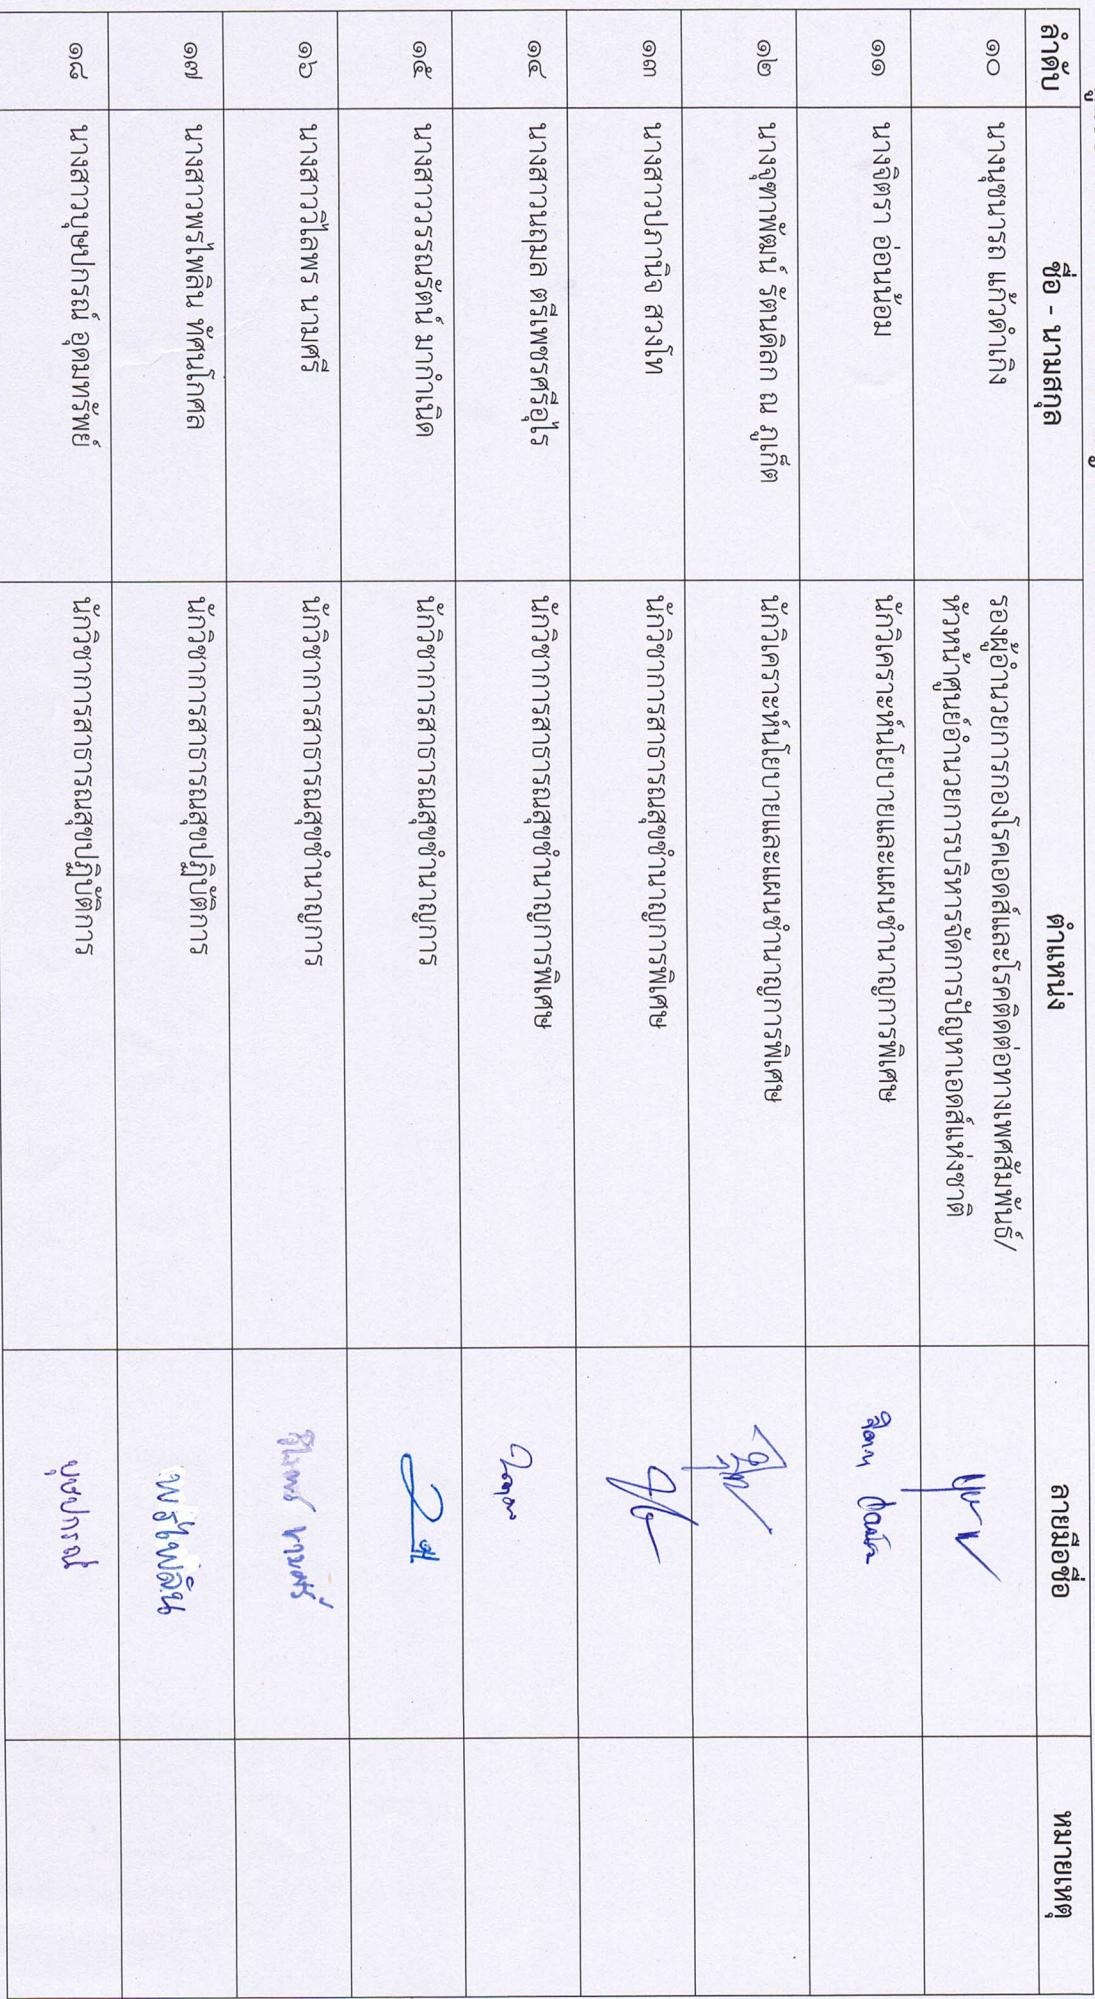 ลำดับ ชื่อ - นามสกุล ตำแหน่ง ลายมือชื่อ หมายเหตุ
๑๐ นางนุชนารถ แก้วดำเกิง รองผู้อำนวยการกองโรคเอดส์และโรคติดต่อทางเพศสัมพันธ์/
หัวหน้าศูนย์อำนวยการบริหารจัดการปัญหาเอดส์แห่งชาติ
๑๑ นางจิตรา อ่อนน้อม นักวิเคราะห์นโยบายและแผนชำนาญการพิเศษ
๑๒ นางจุฑาพัฒน์ รัตนดิลก ณ ภูเก็ต นักวิเคราะห์นโยบายและแผนชำนาญการพิเศษ
๑๓ นางสาวปภานิจ สวงโท นักวิชาการสาธารณสุขชำนาญการพิเศษ
๑๔ นางสาวนฤมล ตรีเพชรศรีอุไร นักวิชาการสาธารณสุขชำนาญการพิเศษ
๑๕ นางสาววรรณรัตน์ มากำเนิด นักวิชาการสาธารณสุขชำนาญการ
๑๖ นางสาววิไลพร นามศรี นักวิชาการสาธารณสุขชำนาญการ วิไลพร นามศรี
๑๗ นางสาวพรไพลิน ทัศนโกศล นักวิชาการสาธารณสุขปฏิบัติการ พรไพลิน
๑๘ นางสาวบุษปภรณ์ อุดมทรัพย์ นักวิชาการสาธารณสุขปฏิบัติการ บุษปภรณ์